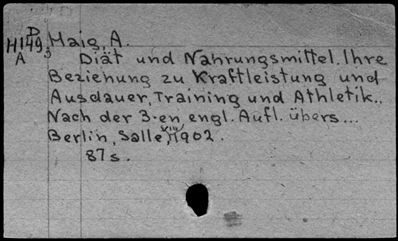 D
H149 Maig, A.
A 3
Diät und Nahrungsmittel. Ihre
Beziehung zu Kraftleistung und
Ausdauer, Training und Athletik..
Nach der 3-en engl. Aufl. übers...
Berlin, Salle, 1902.
87 s.